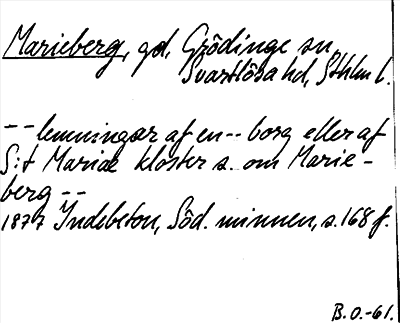 Marieberg, gd, Grödinge sn,
Svartlösa hd, Sthlm l.
-- lemningar af en -- borg eller af
S:t Mariæ kloster s. om Marie-
berg --
1877 Indebetou, Söd. minnen, s. 168 f.
B.O.-61.